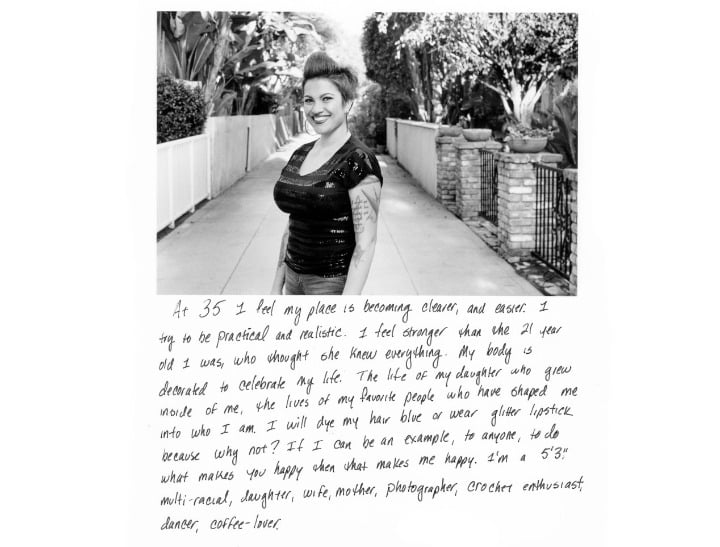 At 35 I feel my place is becoming clearer, and easier. I
try to be practical and realistic. I feel stronger than the 21 year
old I was, who thought she knew everything. My body is
decorated to celebrate my life. The life of my daughter who grew
inside of me, the lives of my favorite people who have shaped me
into who I am. I will dye my hair blue or wear glitter lipstick
because why not? If I can be an example, to anyone, to do
what makes you happy then that makes me happy. I'm a 5'3",
multi-racial, daughter, wife, mother, photographer, crochet enthusiast,
dancer, coffee-lover.